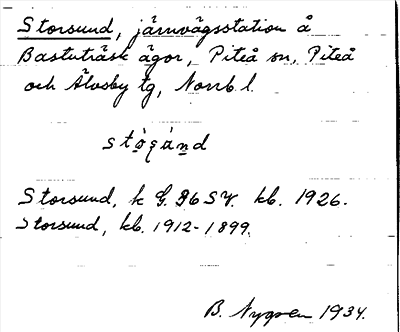 Storsund, järnvägsstation å
Bastuträsk ägor, Piteå sn, Piteå
och Älvsby tg, Norrb. l.
Storsund, k G. 36 SV. kb. 1926.
Storsund, kb. 1912-1899.
B. Nygren 1934.